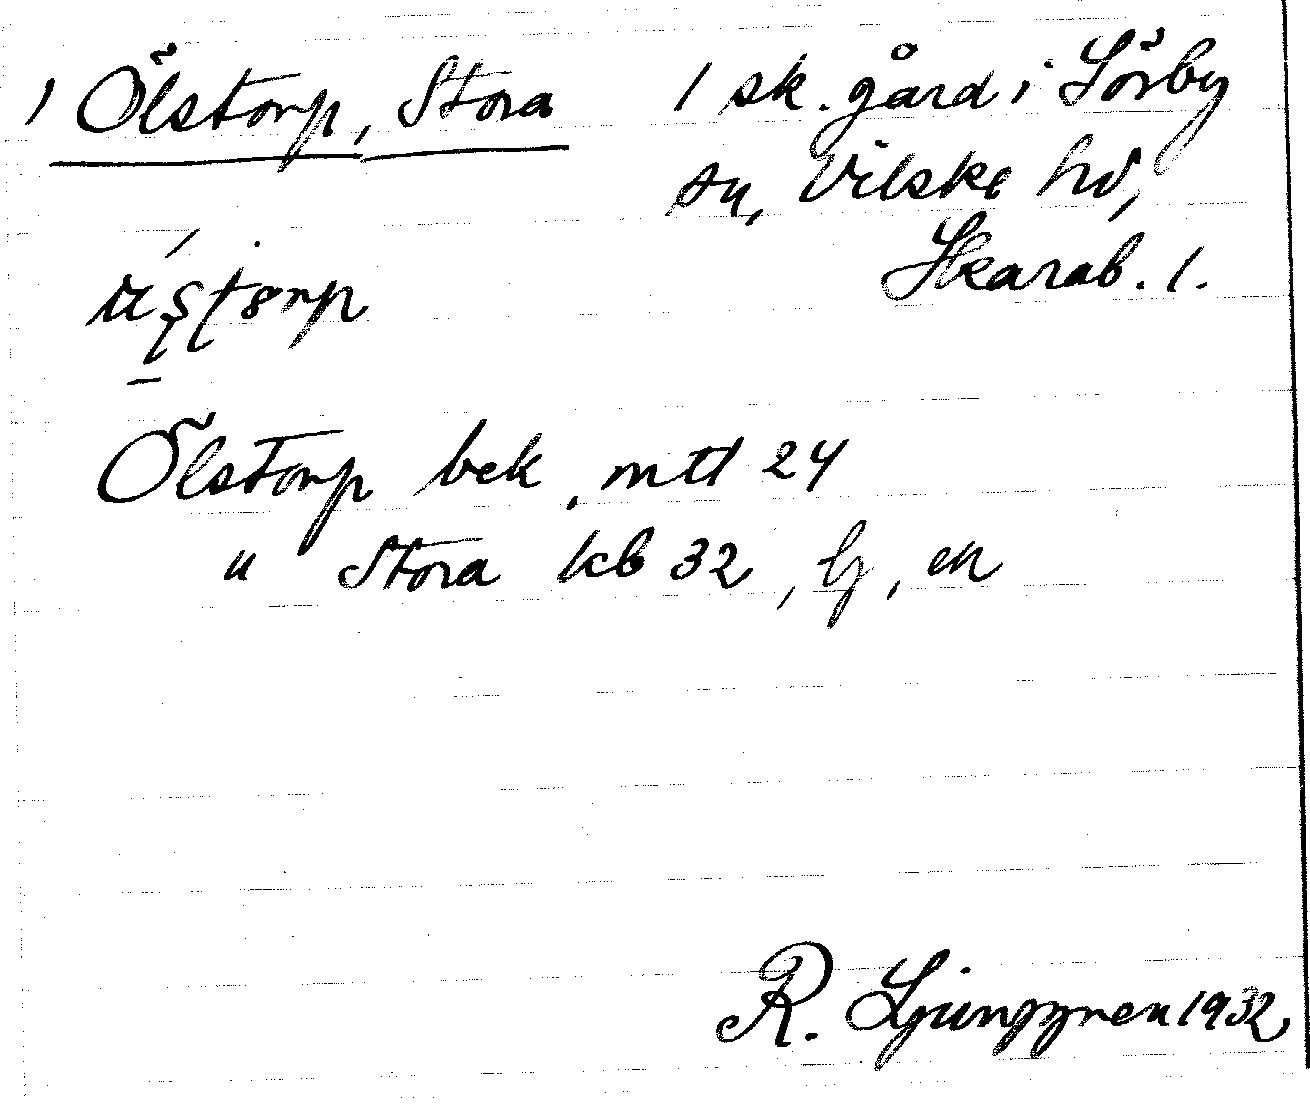 1 Ölstorp, Stora
1 sk. gård i Sörby
sn, Vilske hd,
Skarab. l.
Ölstorp bek. mtl 24
" Stora kb 32, lj, en
R. Ljunggren 1932